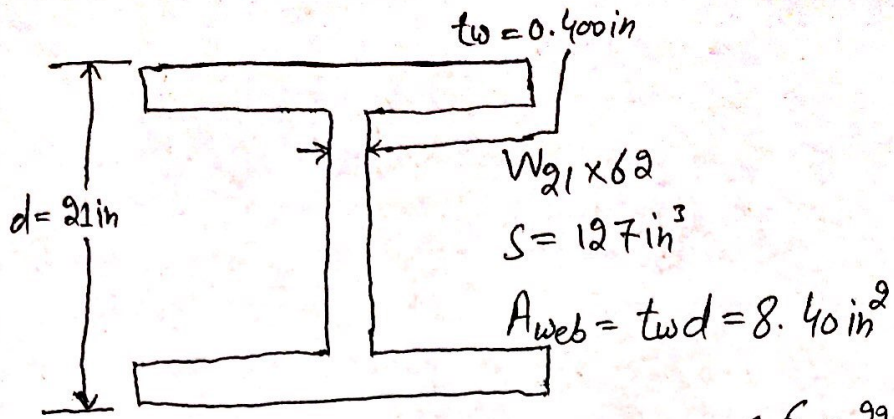 tw = 0.400in
d = 21in
W21 x 62
S = 127in³
Aweb = twd = 8.40in²